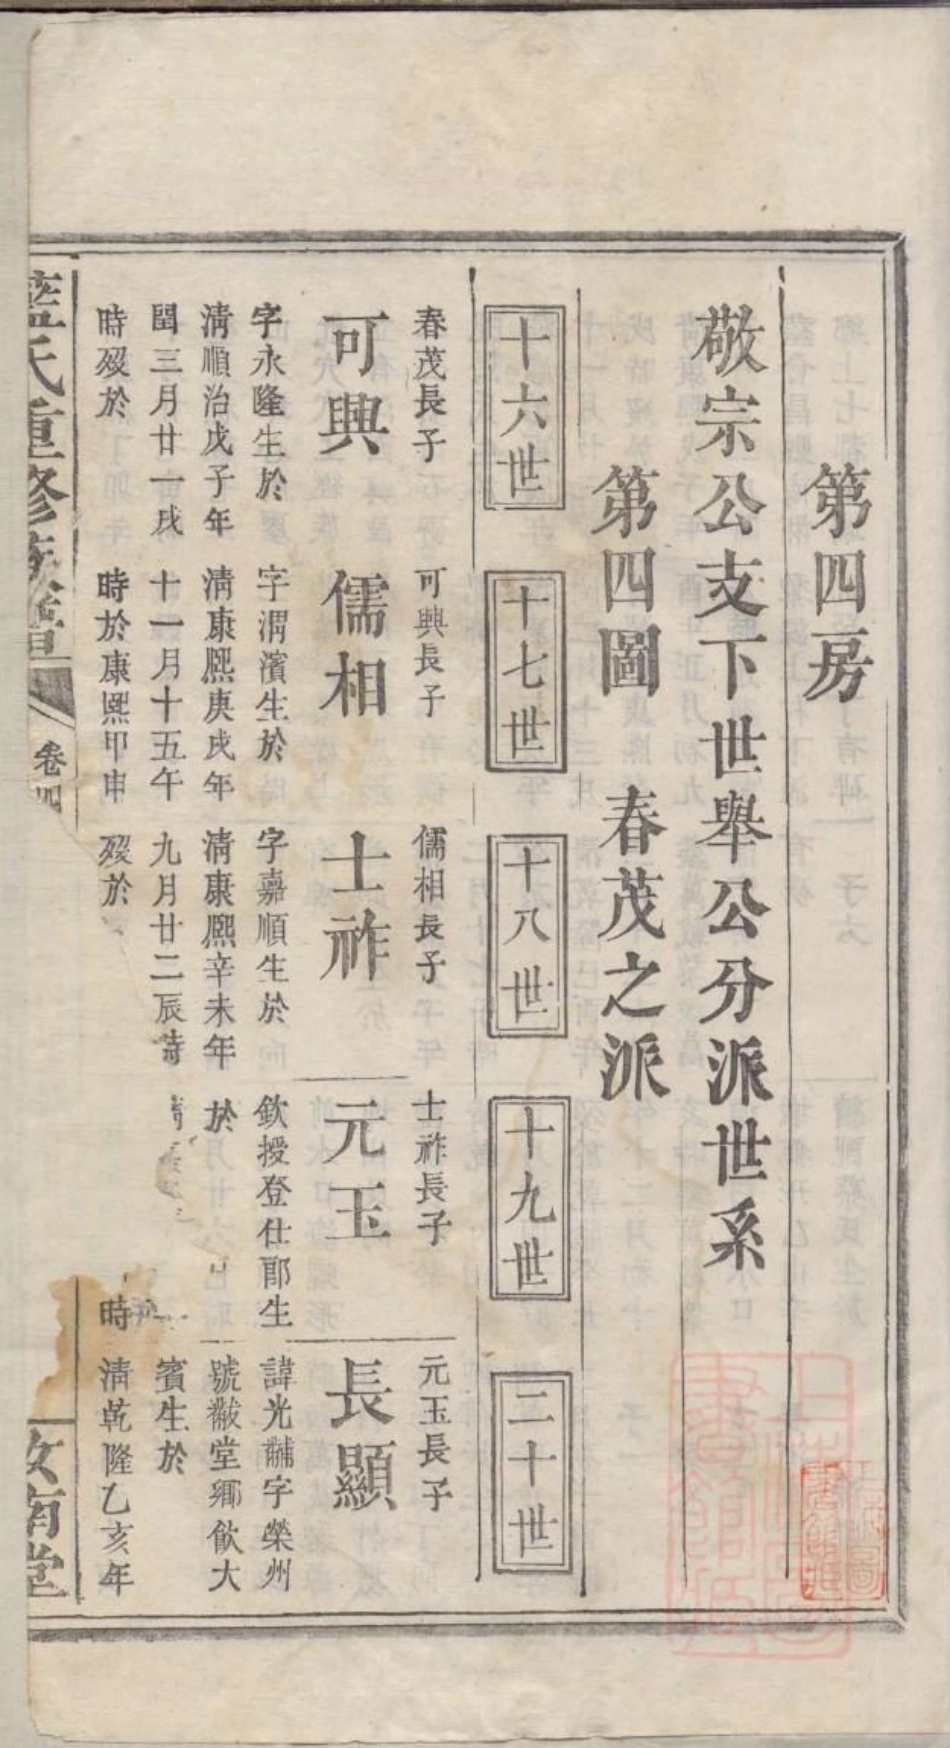 第四房
敬宗公支下世舉公分派世系
第四圖 春茂之派
十六世
十七世
十八世
十九世
二十世
春茂長子
可興
字永隆生於
清順治戊子年
閏三月廿一戌
時歿於
可興長子
儒相
字渭濱生於
清康熙庚戌年
十一月十五午
時於康熙甲申
儒相長子
士祚
字嘉順生於
清康熙辛未年
九月廿二辰時
歿於
士祚長子
元玉
欽授登仕郎生
於
時
元玉長子
長顯
諱光黼字榮州
號黻堂鄉飲大
賓生於
清乾隆乙亥年
藍氏重修族譜
卷四
汝南堂